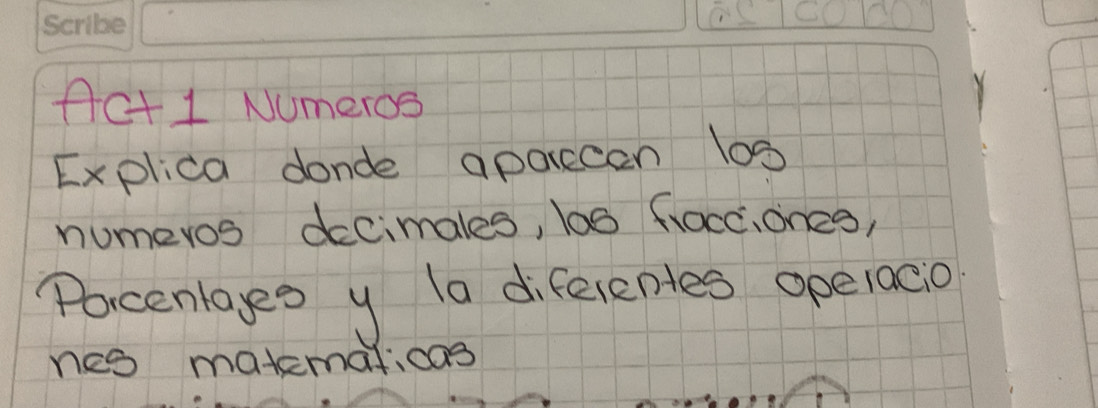 Scribe
Act 1 Numeros
Explica donde aparecen los
numeros decimales, las fracciones,
Porcentages y la diferentes operacio
nes matematicas